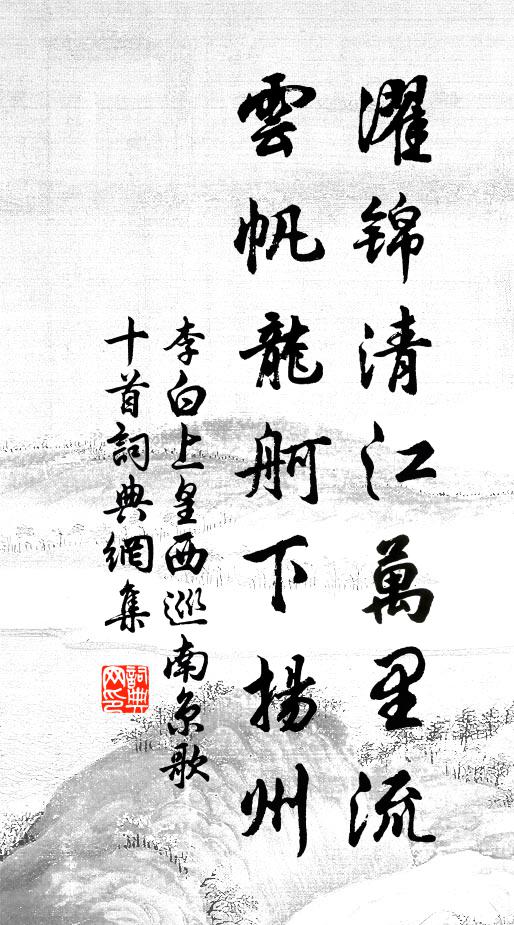 濯錦清江萬里流
雲帆龍舸下揚州
李白上皇西巡南京歌
十首詞典網集
詞典
网印